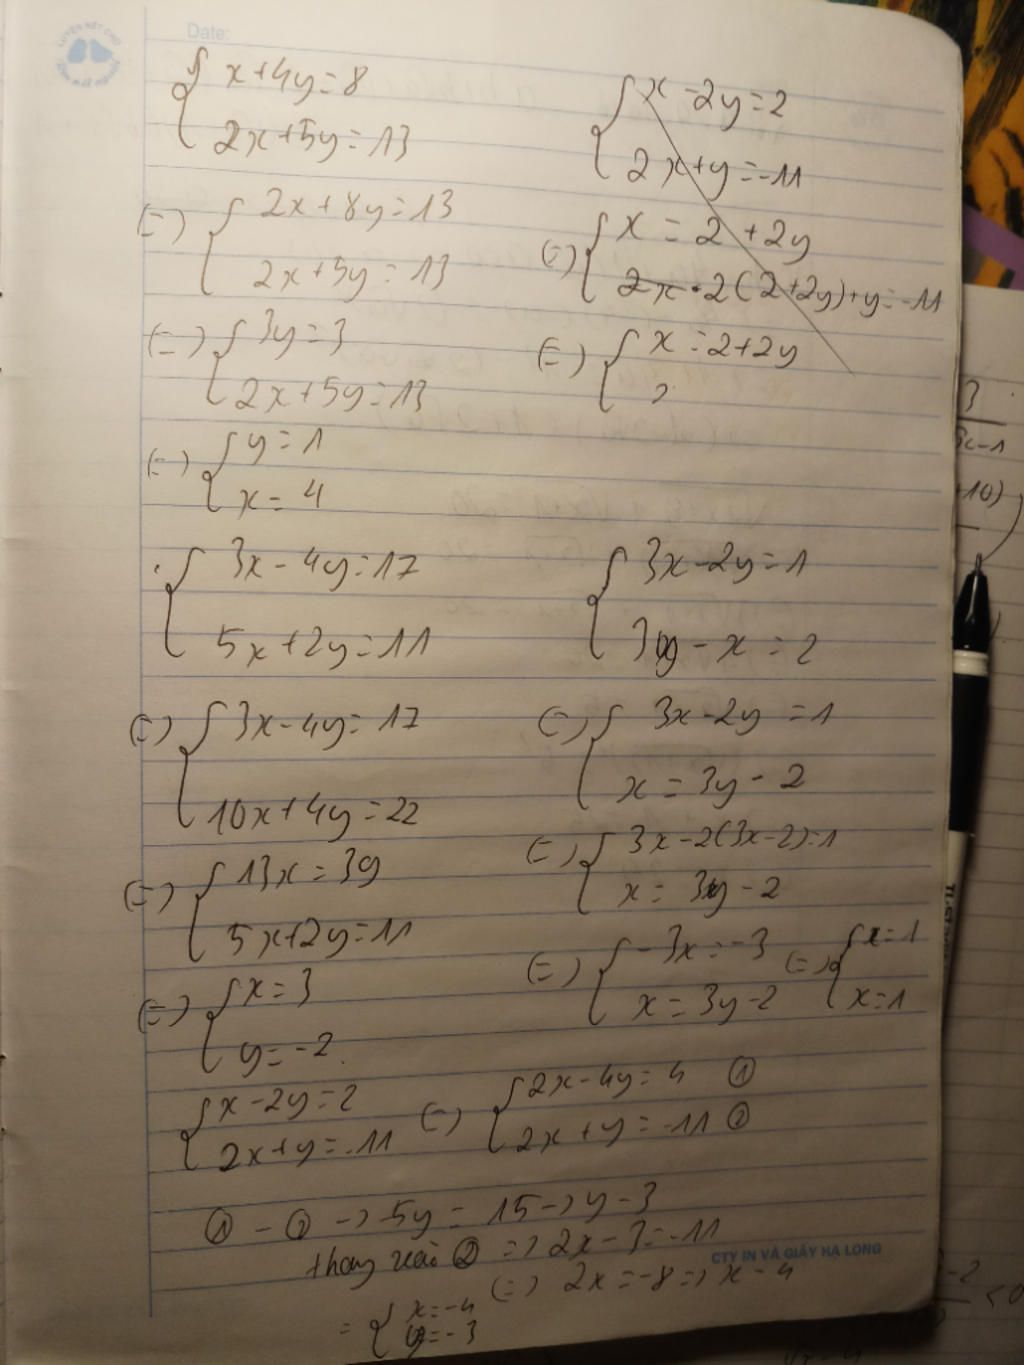 Date:
x+4y=8
2x+5y=13
(=) 2x+8y=13
2x+5y=13
(=) 3y=3
2x+5y=13
(=) y=1
x=4
x-2y=2
2x+y=-11
(=) x=2+2y
2x·2(2+2y)+y=-11
(=) x=2+2y
2
3x-4y=17
5x+2y=11
(=) 3x-4y=17
10x+4y=22
(=) 13x=39
5x+2y=11
(=) x=3
y=-2.
3x-2y=1
3y-x=2
(=) 3x-2y=1
x=3y-2
(=) 3x-2(3x-2)=1
x=3y-2
(=) -3x=-3 (=) x=1
x=3y-2 x=1
x-2y=2 (=) 2x-4y=4 ①
2x+y=-11 2x+y=-11 ②
①-②->-5y=15->y-3
thay vào ② => 2x-3=-11
(=) 2x=-8=> x-4
= x=-4
y=-3
CTY IN VÀ GIẤY HẠ LONG